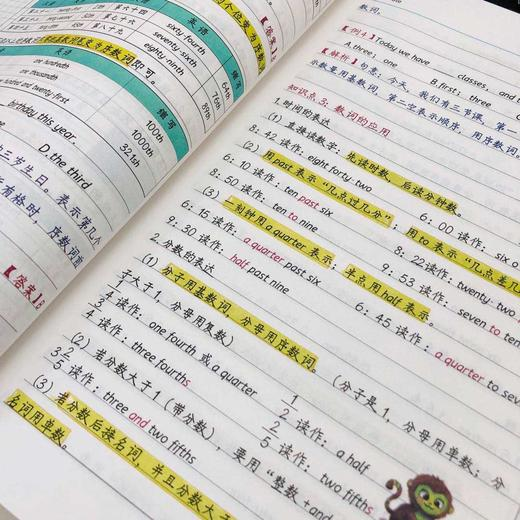 英语
缩写
第六十四
sixty fourth
64th
第七十六
seventy sixth
76th
第八十九
eighty ninth
89th
个位变为序数
变为序数词即可。
英语
缩写
one hundredth
100th
one thousandth
1000th
hundred and twenty-first
321st
birthday this year.
D. the third
三岁生日。表示第几个
有格时,序数词前
【答案】B
数词。
【例4】Today we have ___ classes, and
A. three; one
B. first; three
【解析】句意:今天,我们有三节课,第一
示数量用基数词,第二空表示顺序,用序数词。
知识点3:数词的应用
1.时间的表达
(1) 直接读数字:先读时数,后读分钟数。
8:42 读作:eight forty-two
6:00
(2) 用past表示“几点过几分”;用to表示“几点差几
6:10 读作:ten past six
8:50 读作:ten to nine
8:22读作:twenty-two
(3) 一刻钟用a quarter表示;半点用half表示。
6:15 读作:a quarter past six
9:53 读作:seven to ten
9:30 读作:half past nine
6:45 读作:a quarter to se
2.分数的表达
(1) 分子用基数词,分母用序数词。(分子是1,分母用单数;分
子大于1,分母用复数)
1/4 读作:one fourth 或 a quarter
1/2 读作:a half
3/4 读作:three fourths
2/5 读作:two fifths
(2) 若分数大于1(带分数),要用“整数+and
3 2/5 读作:three and two fifths
(3) 若分数后接名词,并且分数大于
名词用单数。